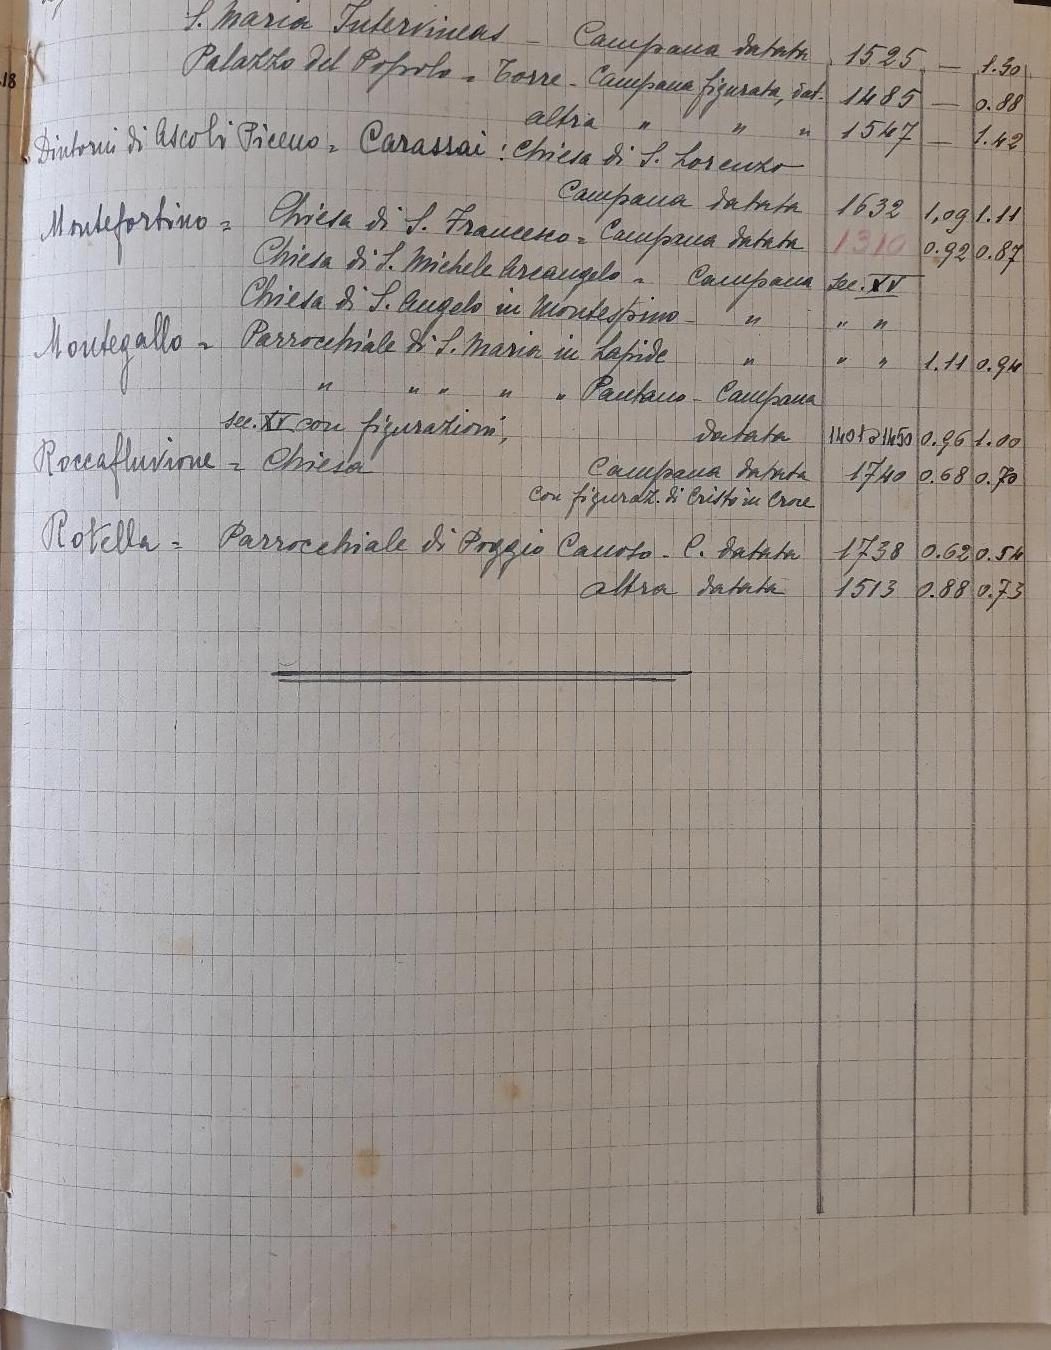 S. Maria Intervineas - Campana datata 1525 - 1.30
18
Palazzo del Popolo = Torre - Campana figurata, dat. 1485 - 0.88
altra " " " 1547 - 1.42
Dintorni di Ascoli Piceno = Carassai: Chiesa di S. Lorenzo
Campana datata 1632 1,09 1.11
Montefortino = Chiesa di S. Francesco = Campana datata 1310 0.92 0.87
Chiesa di S. Michele Arcangelo = Campana sec. XV
Chiesa di S. Angelo in Montespino - " " "
Montegallo = Parrocchiale di S. Maria in Lapide " " " 1.11 0.94
" " " " " Pantano - Campana
sec. XV con figurazioni, datata 1401 o 1450 0.96 1.00
Roccafluvione = Chiesa Campana datata 1740 0.68 0.70
con figuraz. di Cristo in Croce
Rotella = Parrocchiale di Poggio Canoso - C. datata 1738 0.62 0.54
altra datata 1513 0.88 0.73